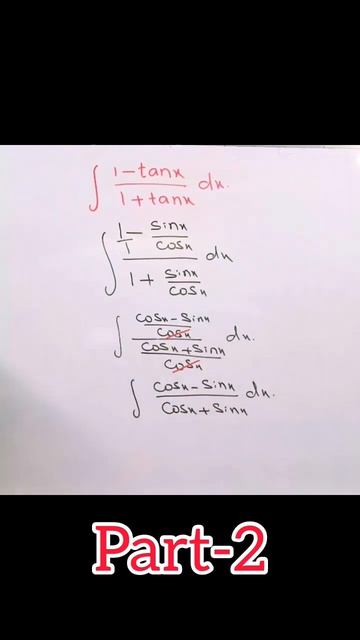 ∫ (1-tanx)/(1+tanx) dx.
∫ (1/1 - sinx/cosx)/(1 + sinx/cosx) dx
∫ ((cosx-sinx)/cosx)/((cosx+sinx)/cosx) dx.
∫ (cosx-sinx)/(cosx+sinx) dx.
Part-2